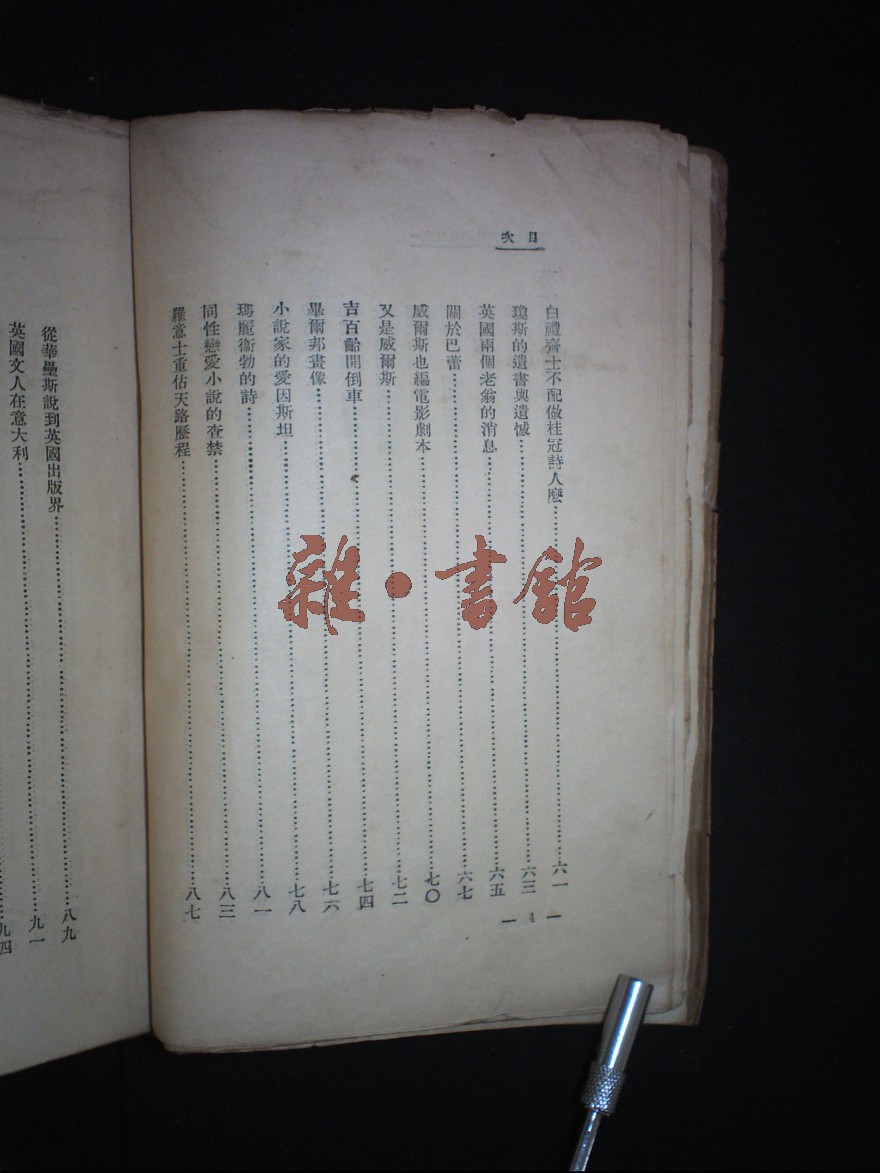 目次
白禮齊士不配做桂冠詩人麽……六一
瓊斯的遺書與遺憾……六三
英國兩個老翁的消息……六五
關於巴蕾……六七
威爾斯也編電影劇本……七〇
又是威爾斯……七二
吉百齡開倒車……七四
畢爾邦畫像……七六
小說家的愛因斯坦……七八
瑪麗衞勃的詩……八一
同性戀愛小說的查禁……八三
羅意士重估天路歷程……八七
從華壘斯說到英國出版界……八九
英國文人在意大利……九一
九四
雜·書館